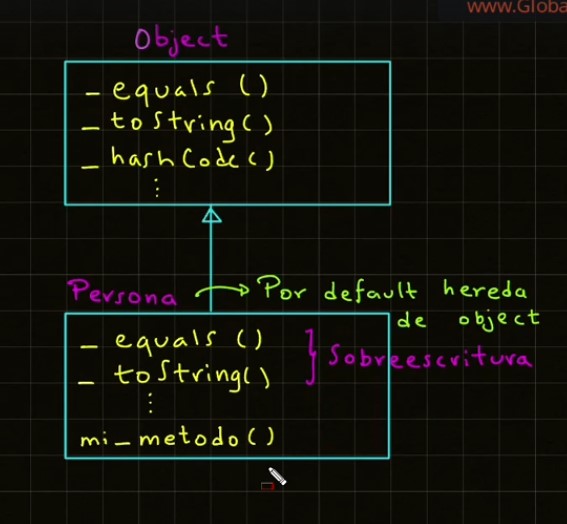 www.Globa
Object
- equals ()
- toString()
- hashCode()
⋮
Persona → Por default hereda
de object
- equals ()
- toString()
} Sobreescritura
⋮
mi_metodo()